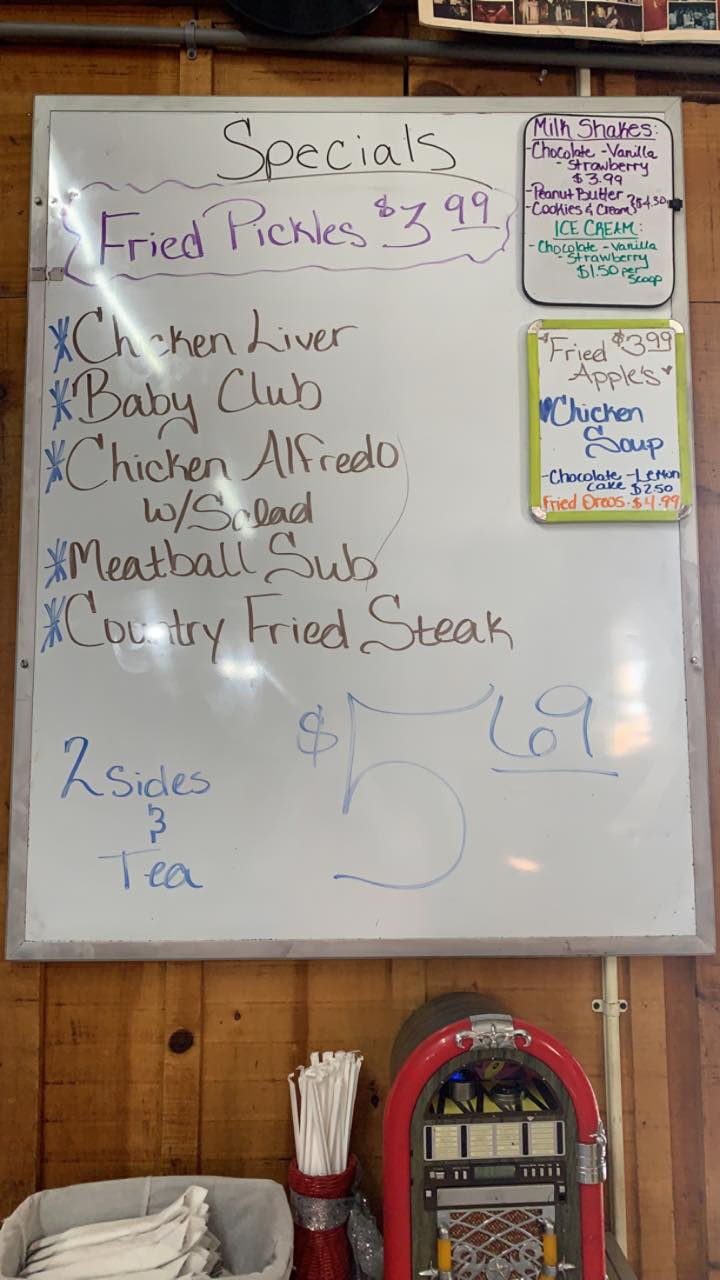 Specials
Fried Pickles $3.99
Chicken Liver
Baby Club
Chicken Alfredo
w/Salad
Meatball Sub
Country Fried Steak
$5.69
2 Sides
&
Tea
Milk Shakes:
-Chocolate -Vanilla
-Strawberry
$3.99
-Peanut Butter
-Cookies & Cream $4.50
ICE CREAM:
-Chocolate -Vanilla
-Strawberry
$1.50 per
scoop
Fried $3.99
Apple's
Chicken
Soup
-Chocolate -Lemon
cake $2.50
Fried Oreos-$4.99